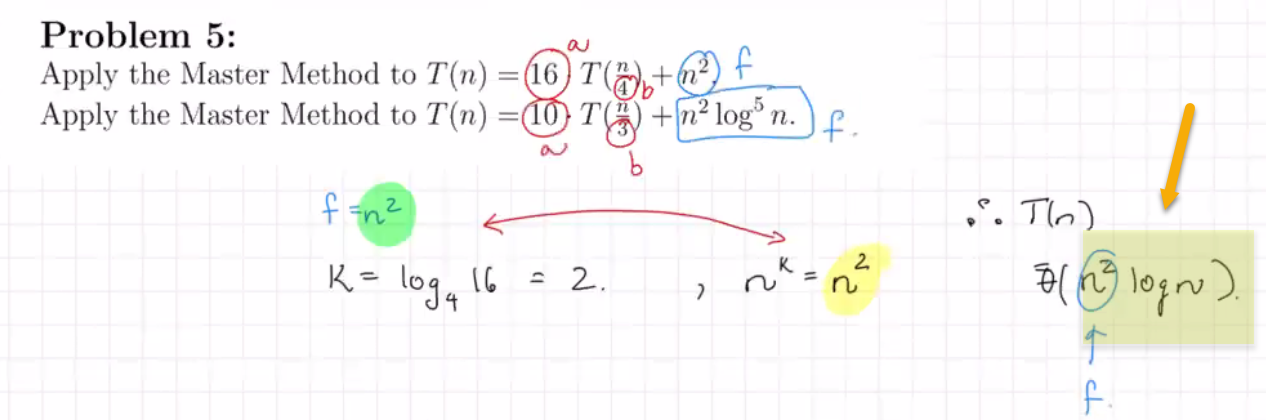 Problem 5:
a
Apply the Master Method to T(n) = 16 T(n/4) + n². f
b
Apply the Master Method to T(n) = 10 · T(n/3) + n² log⁵ n. f.
a
b
f = n²
∴ T(n)
K = log₄ 16 = 2. , n^K = n²
Θ(n² log n).
f.